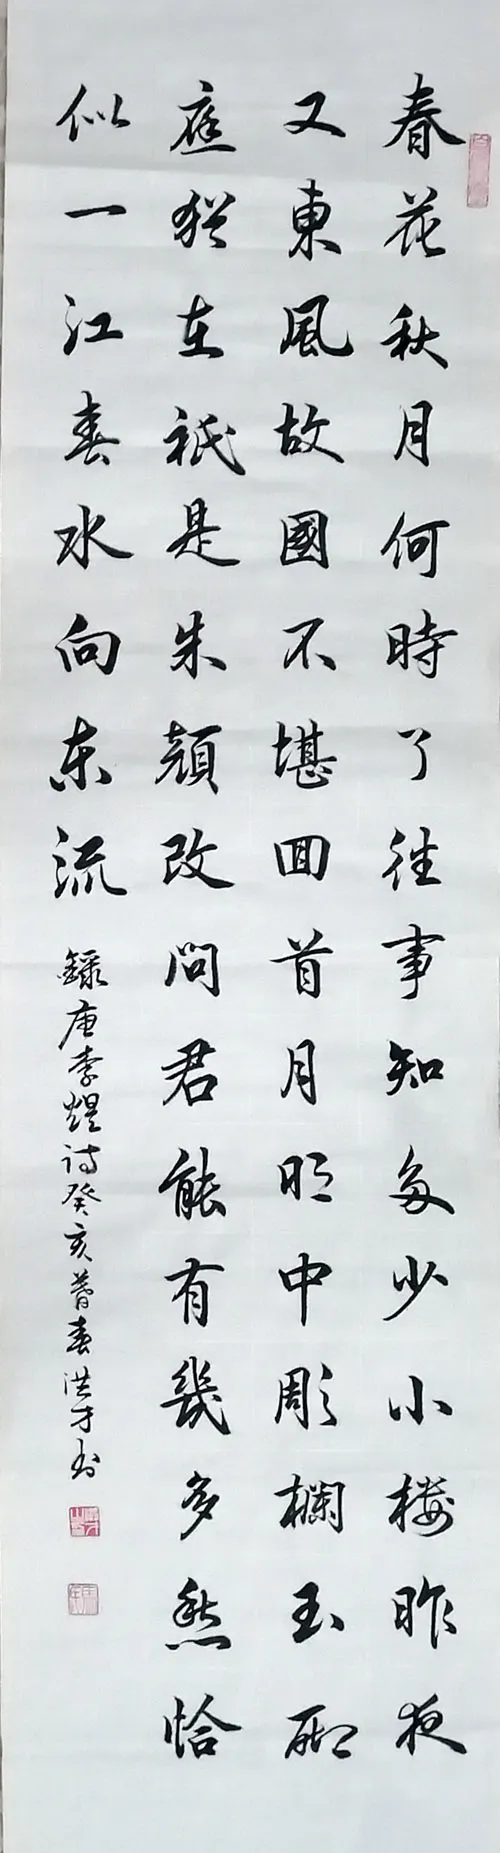 春花秋月何時了往事知多少小楼昨夜
又東風故國不堪囬首月明中彫欄玉砌
庭猶在祇是朱顏改問君能有幾多愁恰
似一江春水向东流
錄唐李煜诗癸亥暮春洪才书